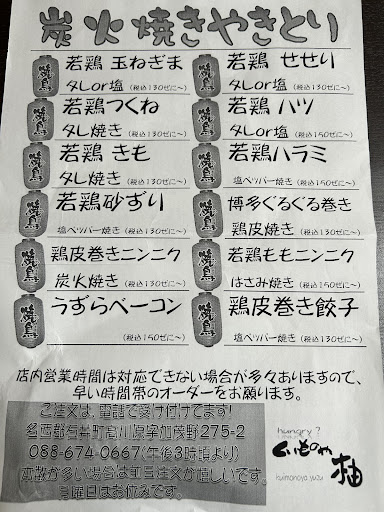 炭火焼きやきとり
若鶏 玉ねぎま
タレor塩 (税込130ぜに〜)
若鶏 せせり
タレor塩 (税込130ぜに〜)
若鶏つくね
タレ焼き (税込130ぜに〜)
若鶏 ハツ
タレor塩 (税込150ぜに〜)
若鶏 きも
タレ焼き (税込130ぜに〜)
若鶏ハラミ
塩ペッパー焼き (税込150ぜに〜)
若鶏砂ずり
塩ペッパー焼き (税込130ぜに〜)
博多ぐるぐる巻き
鶏皮焼き (税込130ぜに〜)
鶏皮巻きニンニク
炭火焼き (税込130ぜに〜)
若鶏ももニンニク
はさみ焼き (税込150ぜに〜)
うずらベーコン
(税込150ぜに〜)
鶏皮巻き餃子
塩ペッパー焼き (税込130ぜに〜)
店内営業時間は対応できない場合が多々ありますので、
早い時間帯のオーダーをお願います。
ご注文は、電話で受け付けてます!
名西郡石井町高川原字加茂野275-2
088-674-0667(午後3時頃より)
本数が多い場合は前日注文が嬉しいです。
日曜日はお休みです。
hungry?
くいものや 柚
kuimonoya yuzu